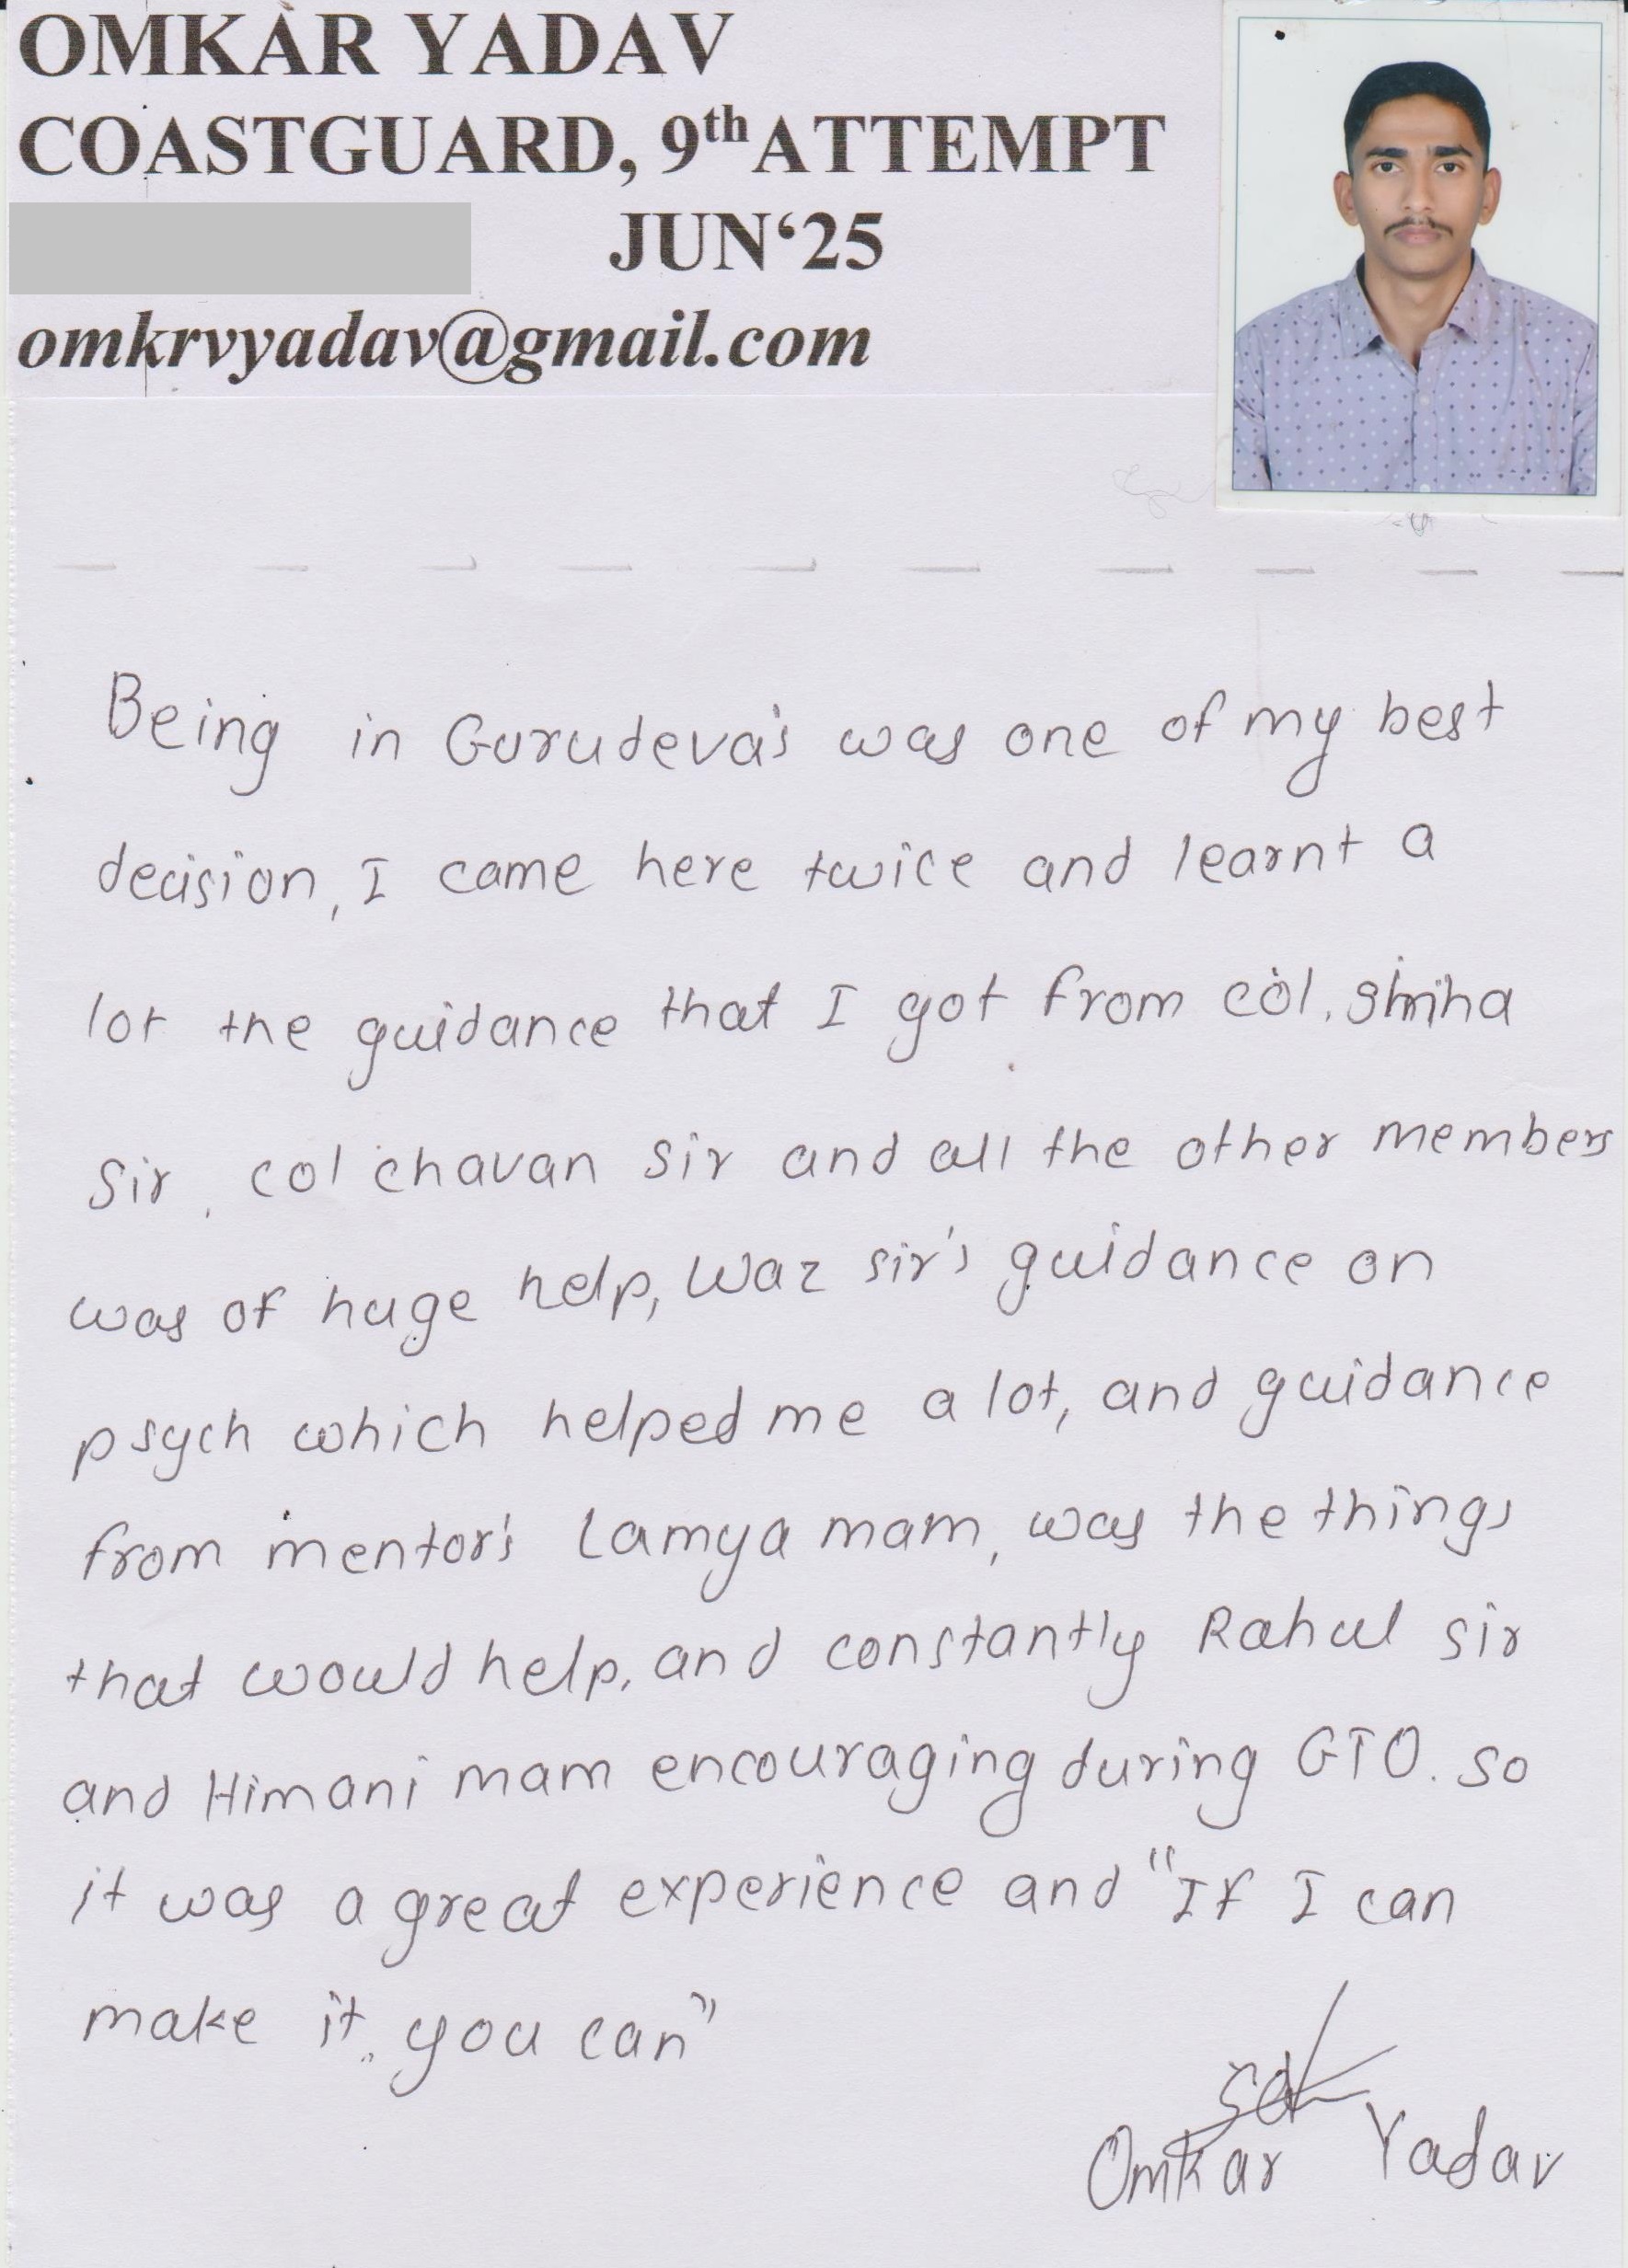 OMKAR YADAV
COASTGUARD, 9th ATTEMPT
JUN‘25
omkrvyadav@gmail.com
Being in Gurudeva's was one of my best
decision, I came here twice and learnt a
lot the guidance that I got from col.
Sir, col chavan sir and all the other members
was of huge help, Waz sir's guidance on
psych which helped me a lot, and guidance
from mentor's Lamya mam, was the things
that would help, and constantly Rahul sir
and Himani mam encouraging during GTO. so
it was a great experience and "If I can
make it, you can"
Omkar Yadav